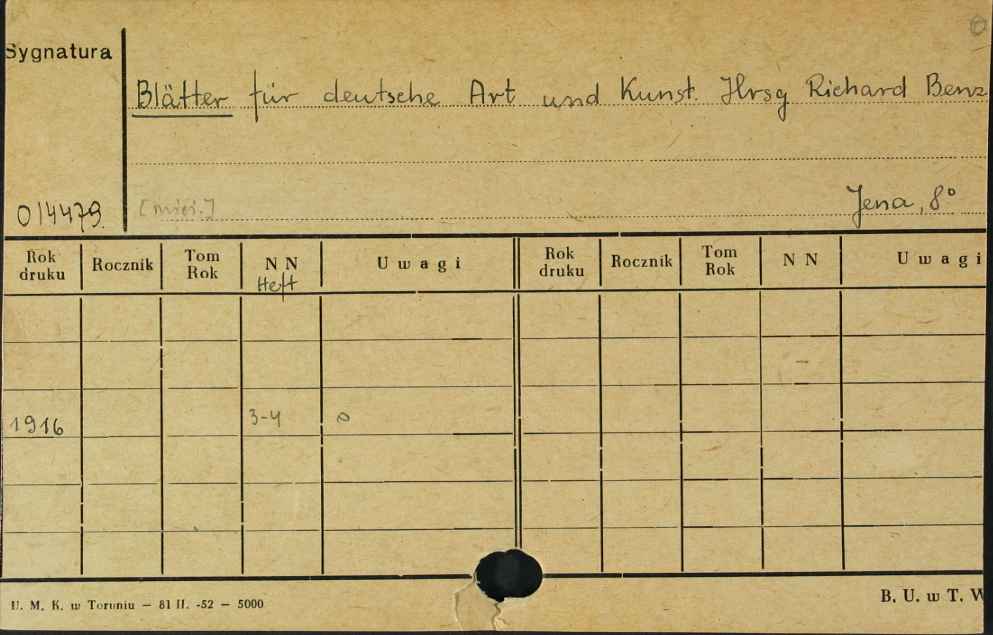 Sygnatura
Blätter für deutsche Art und Kunst. Hrsg Richard Benz
014479. [mies.] Jena, 8°
Rok druku Rocznik Tom Rok N N Heft U w a g i Rok druku Rocznik Tom Rok N N U w a g i
1916 3-4 o
U. M. K. w Toruniu — 81 II. -52 — 5000
B. U. w T. W